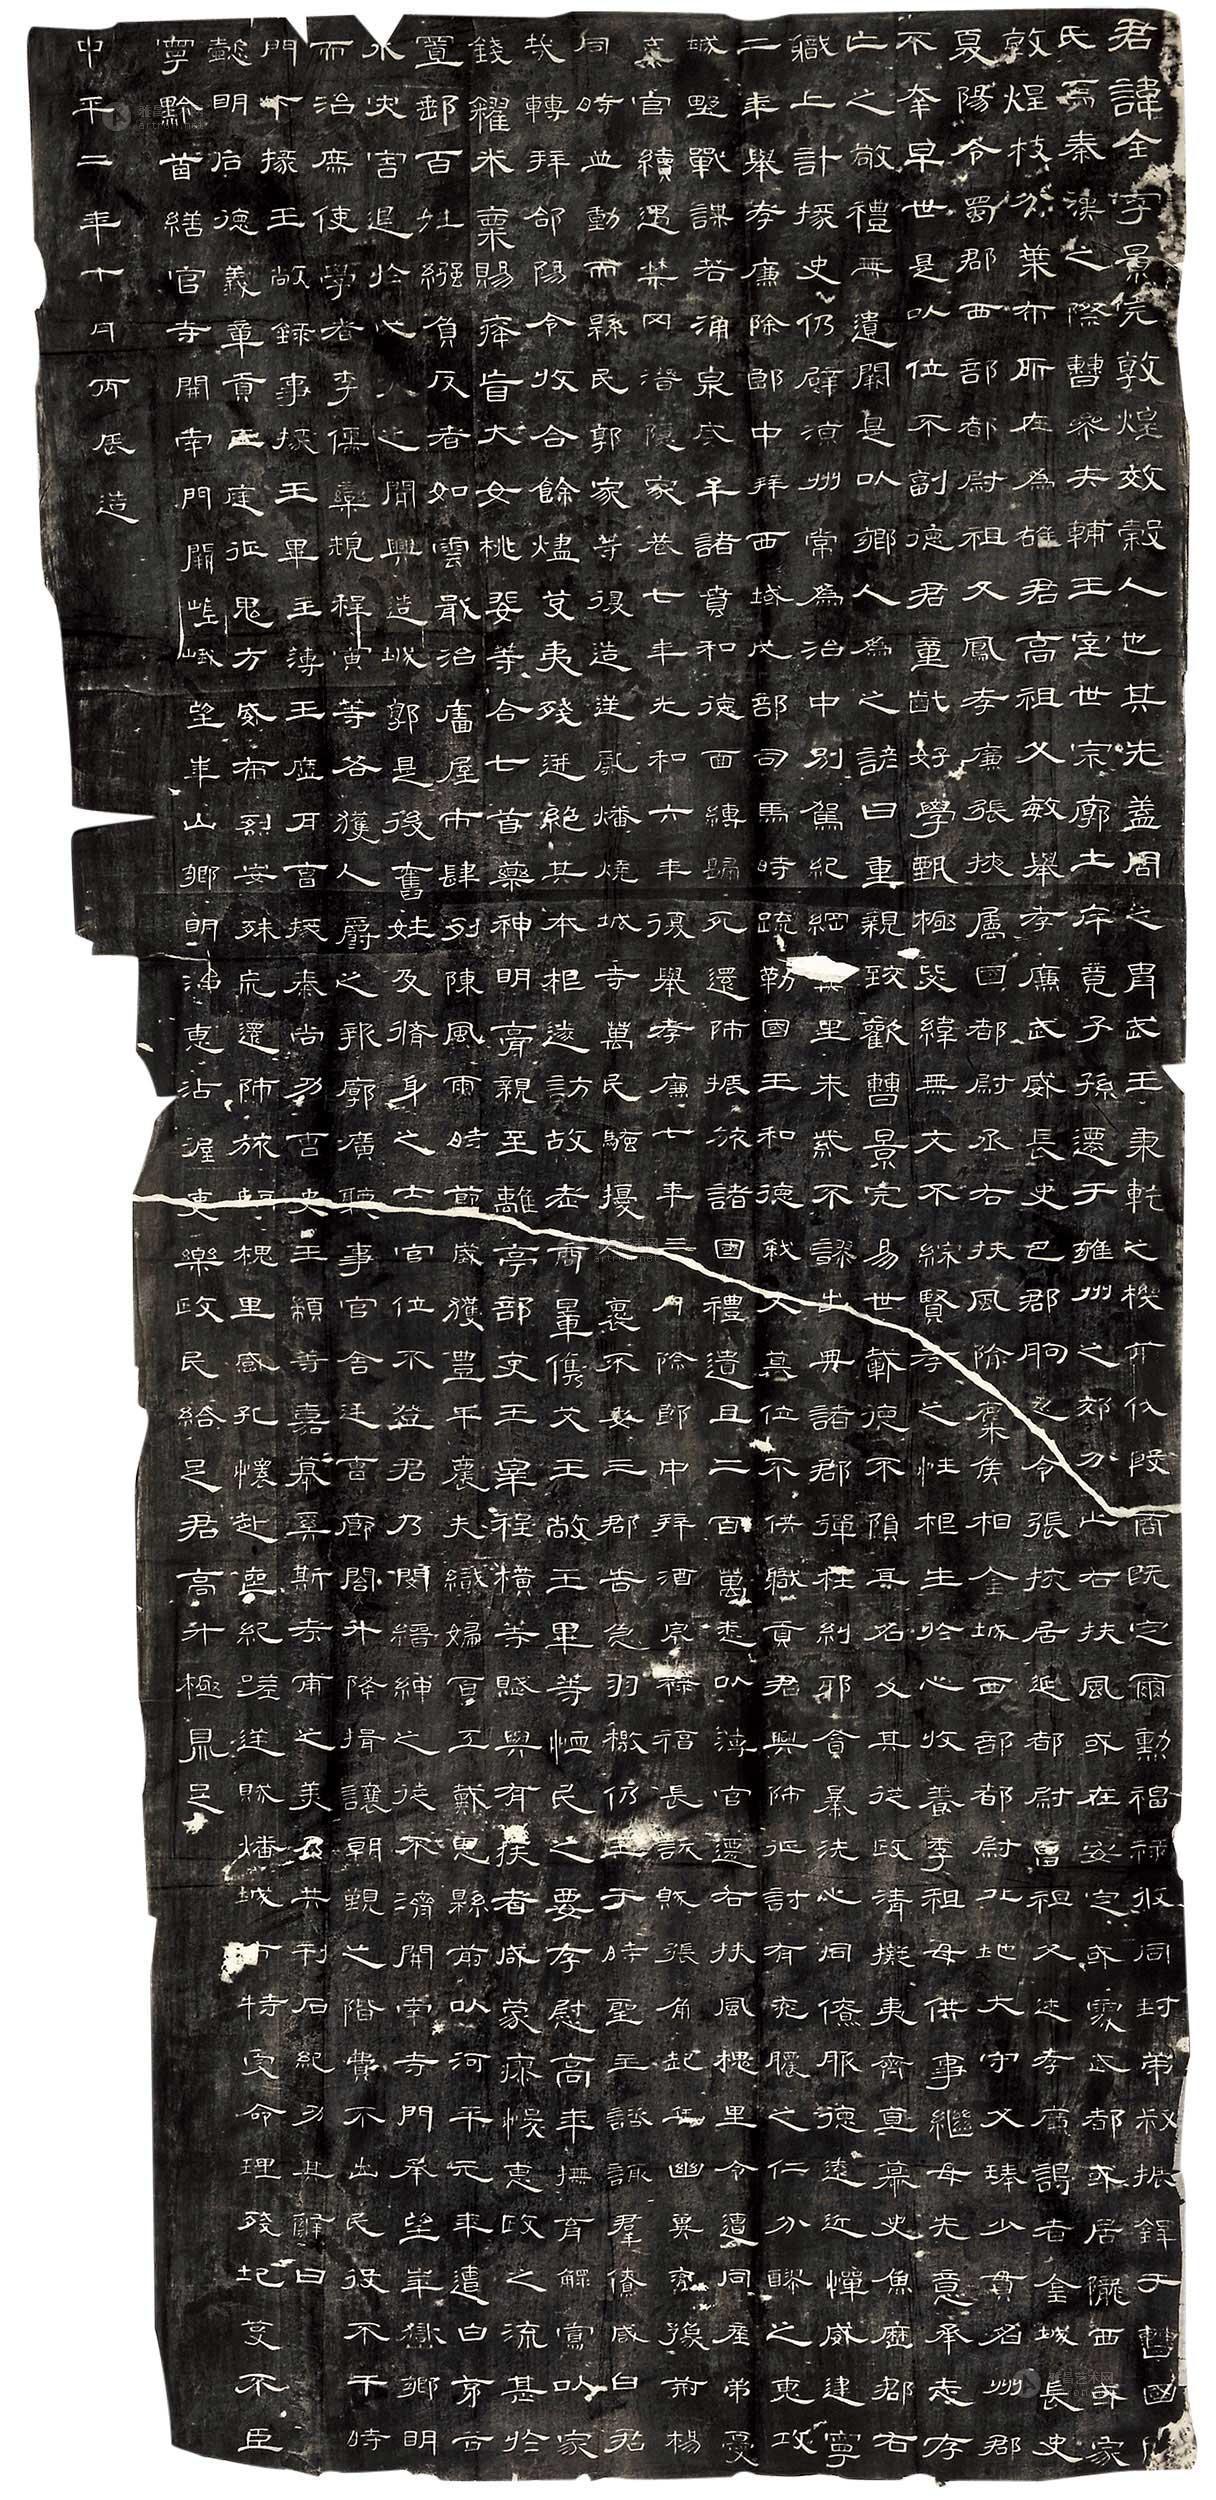 君諱全字景完敦煌效穀人也其先蓋周之胄武王秉乾之機翦伐殷商既定爾勳福祿攸同封弟叔振鐸于曹國因
氏焉秦漢之際曹參夾輔王室世宗廓土斥竟子孫遷于雍州之郊分止右扶風或在安定或處武都或居隴西或家
敦煌枝分葉布所在為雄君高祖父敏舉孝廉武威長史巴郡朐忍令張掖居延都尉曾祖父述孝廉謁者金城長史
夏陽令蜀郡西部都尉祖父鳳孝廉張掖屬國都尉丞右扶風隃麋侯相金城西部都尉北地大守父琫少貫名州郡
不幸早世是以位不副德君童齔好學甄極毖緯無文不綜賢孝之性根生於心收養季祖母供事繼母先意承志存
亡之敬禮無遺闕是以鄉人為之諺曰重親致歡曹景完易世載德不隕其名及其從政清擬夷齊直慕史魚歷郡右
職上計掾史仍辟涼州常為治中別駕紀綱萬里朱紫不謬出典諸郡彈枉糾邪貪暴洗心同僚服德遠近憚威建寧
二年舉孝廉除郎中拜西域戊部司馬時疏勒國王和德弒父篡位不供職貢君興師征討有兗膿之仁分醪之惠攻
城野戰謀若涌泉威牟諸賁和德面縛歸死還師振旅諸國禮遺且二百萬悉以薄官遷右扶風槐里令遭同產弟憂
棄官續遇禁冈潛隱家巷七年光和六年復舉孝廉七年三月除郎中拜酒泉祿福長訞賊張角起兵幽冀兗豫荊楊
同時並動而縣民郭家等復造逆亂燔燒城寺萬民騷擾人裹不安三郡告急羽檄仍至于時聖主諮諏群僚咸曰君
哉轉拜郃陽令收合餘燼芟夷殘迸絕其本根遂訪故老商量儁艾王敞王畢等恤民之要存慰高年撫育鰥寡以家
錢糴米粟賜癃盲大女桃婓等合七首藥神明膏親至離亭部吏王宰程橫等賦與有疾者咸蒙瘳悛惠政之流甚於
置郵百姓繈負反者如雲戢治廧屋市肆列陳風雨時節歲獲豐年農夫織婦百工戴恩縣前以河平元年遭白茅谷
水災害退於戌亥之間興造城郭是後舊姓及脩身之士官位不登君乃閔縉紳之徒不濟開南寺門承望華嶽鄉明
而治庶使學者李儒欒規程寅等各獲人爵之報廓廣聽事官舍廷曹廊閣升降揖讓朝覲之階費不出民役不干時
門下掾王敞錄事掾王畢主簿王歷戶曹掾秦尚功曹史王顓等嘉慕奚斯考甫之美乃共刊石紀功其辭曰
懿明后德義章貢王庭征鬼方威布烈安殊荒還師旅臨槐里感孔懷赴喪紀嗟逆賊燔城市特受命理殘圯芟不臣
寧黔首繕官寺開南門闕嵯峨望華山鄉明治惠沾渥吏樂政民給足君高升極鼎足
中平二年十月丙辰造